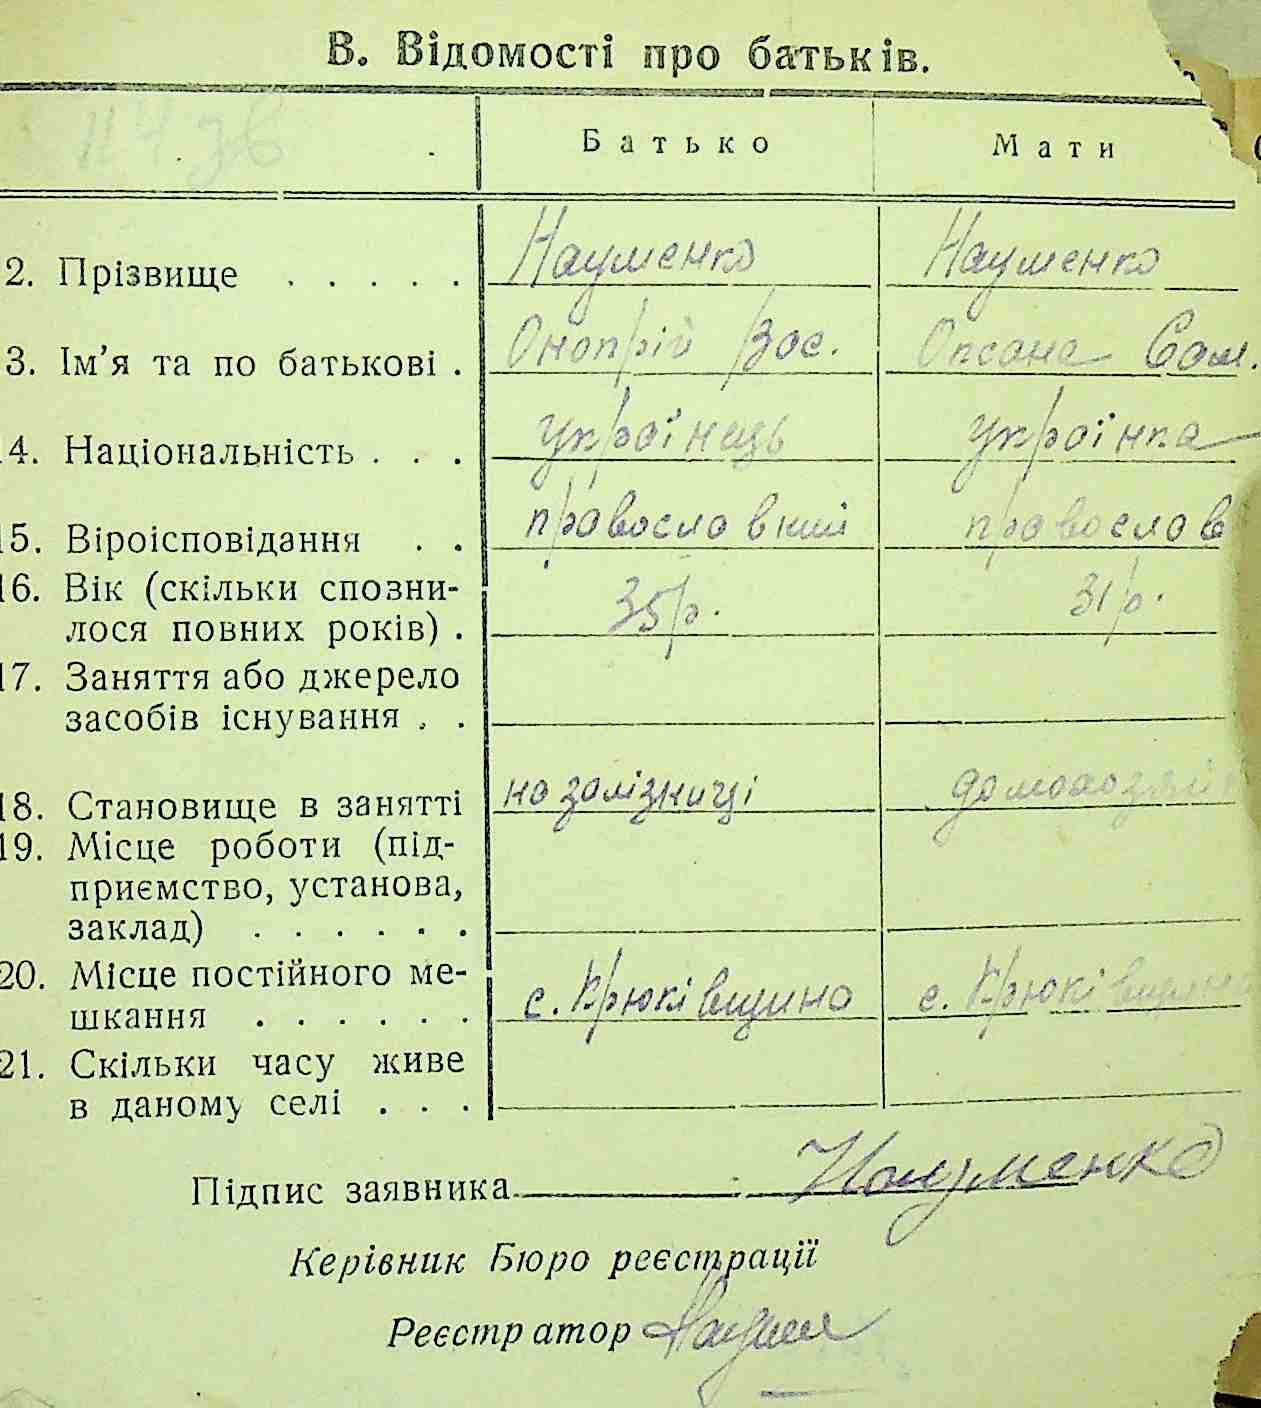 В. Відомості про батьків.
Батько Мати
2. Прізвище . . . . . Науменко Науменко
3. Ім'я та по батькові . Онопрій Зос. Оксана Сам.
4. Національність . . . українець українка
15. Віроісповідання . . православний православ
16. Вік (скільки спозни-
лося повних років) . 35 р. 31 р.
17. Заняття або джерело
засобів існування . .
18. Становище в занятті на залізниці домохозяйк
19. Місце роботи (під-
приємство, установа,
заклад) . . . . . .
20. Місце постійного ме-
шкання . . . . . . с. Крюківщина с. Крюківщина
21. Скільки часу живе
в даному селі . . .
Підпис заявника Науменко
Керівник Бюро реєстрації
Реєстратор